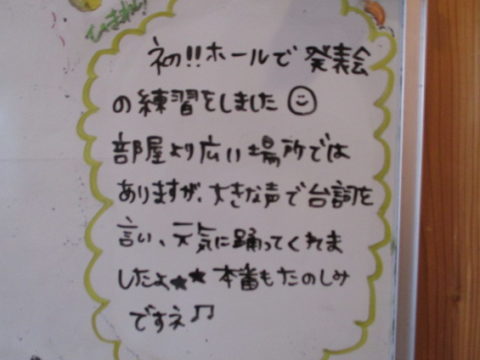 初!!ホールで発表会
の練習をしました☺
部屋より広い場所では
ありますが、大きな声で台詞を
言い、元気に踊ってくれま
したよ★★本番もたのしみ
ですネ♫